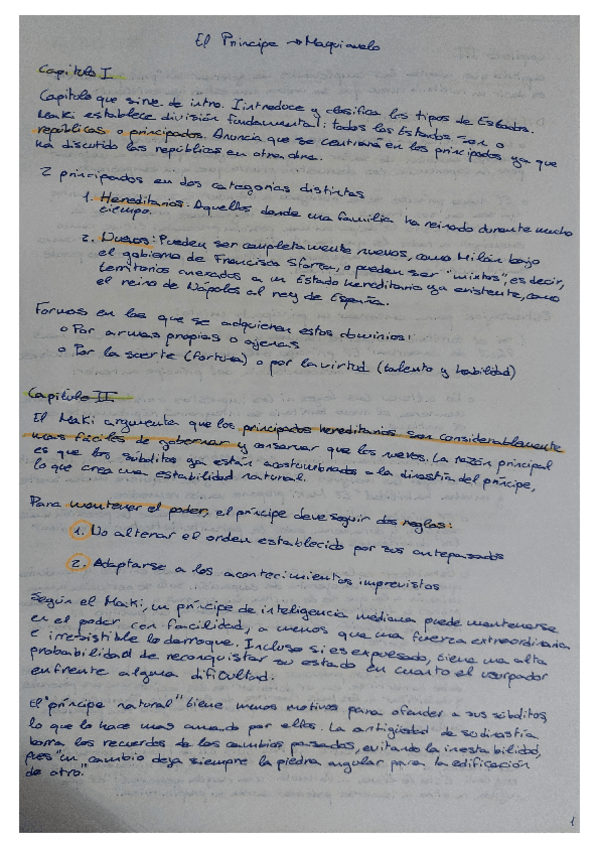 El Príncipe → Maquiavelo
Capítulo I
Capítulo que sirve de intro. Introduce y clasifica los tipos de Estados.
Maki establece división fundamental: todos los Estados son o
repúblicas o principados. Anuncia que se centrará en los principados ya que
ha discutido las repúblicas en otra obra.
2 principados en dos categorías distintas
1. Hereditarios. Aquellos donde una familia ha reinado durante mucho
tiempo.
2. Nuevos: Pueden ser completamente nuevos, como Milán bajo
el gobierno de Francisco Sforza, o pueden ser "mixtos", es decir,
territorios anexados a un Estado hereditario ya existente, como
el reino de Nápoles al rey de España.
Formas en las que se adquieren estos dominios:
o Por armas propias o ajenas
o Por la suerte (fortuna) o por la virtud (talento y habilidad)
Capítulo II
El Maki argumenta que los principados hereditarios son considerablemente
mas fáciles de gobernar y conservar que los nuevos. La razón principal
es que los súbditos ya están acostumbrados a la dinastía del príncipe,
lo que crea una estabilidad natural.
Para mantener el poder, el príncipe debe seguir dos reglas:
1. No alterar el orden establecido por sus antepasados
2. Adaptarse a los acontecimientos imprevistos
Según el Maki, un príncipe de inteligencia mediana puede mantenerse
en el poder con facilidad, a menos que una fuerza extraordinaria
e irresistible lo derroque. Incluso si es expulsado, tiene una alta
probabilidad de reconquistar su estado en cuanto el usurpador
enfrente alguna dificultad.
El "príncipe natural" tiene menos motivos para ofender a sus súbditos
lo que lo hace mas amado por ellos. La antigüedad de su dinastía
borra los recuerdos de los cambios pasados, evitando la inestabilidad,
pues "un cambio deja siempre la piedra angular para la edificación
de otro."
1